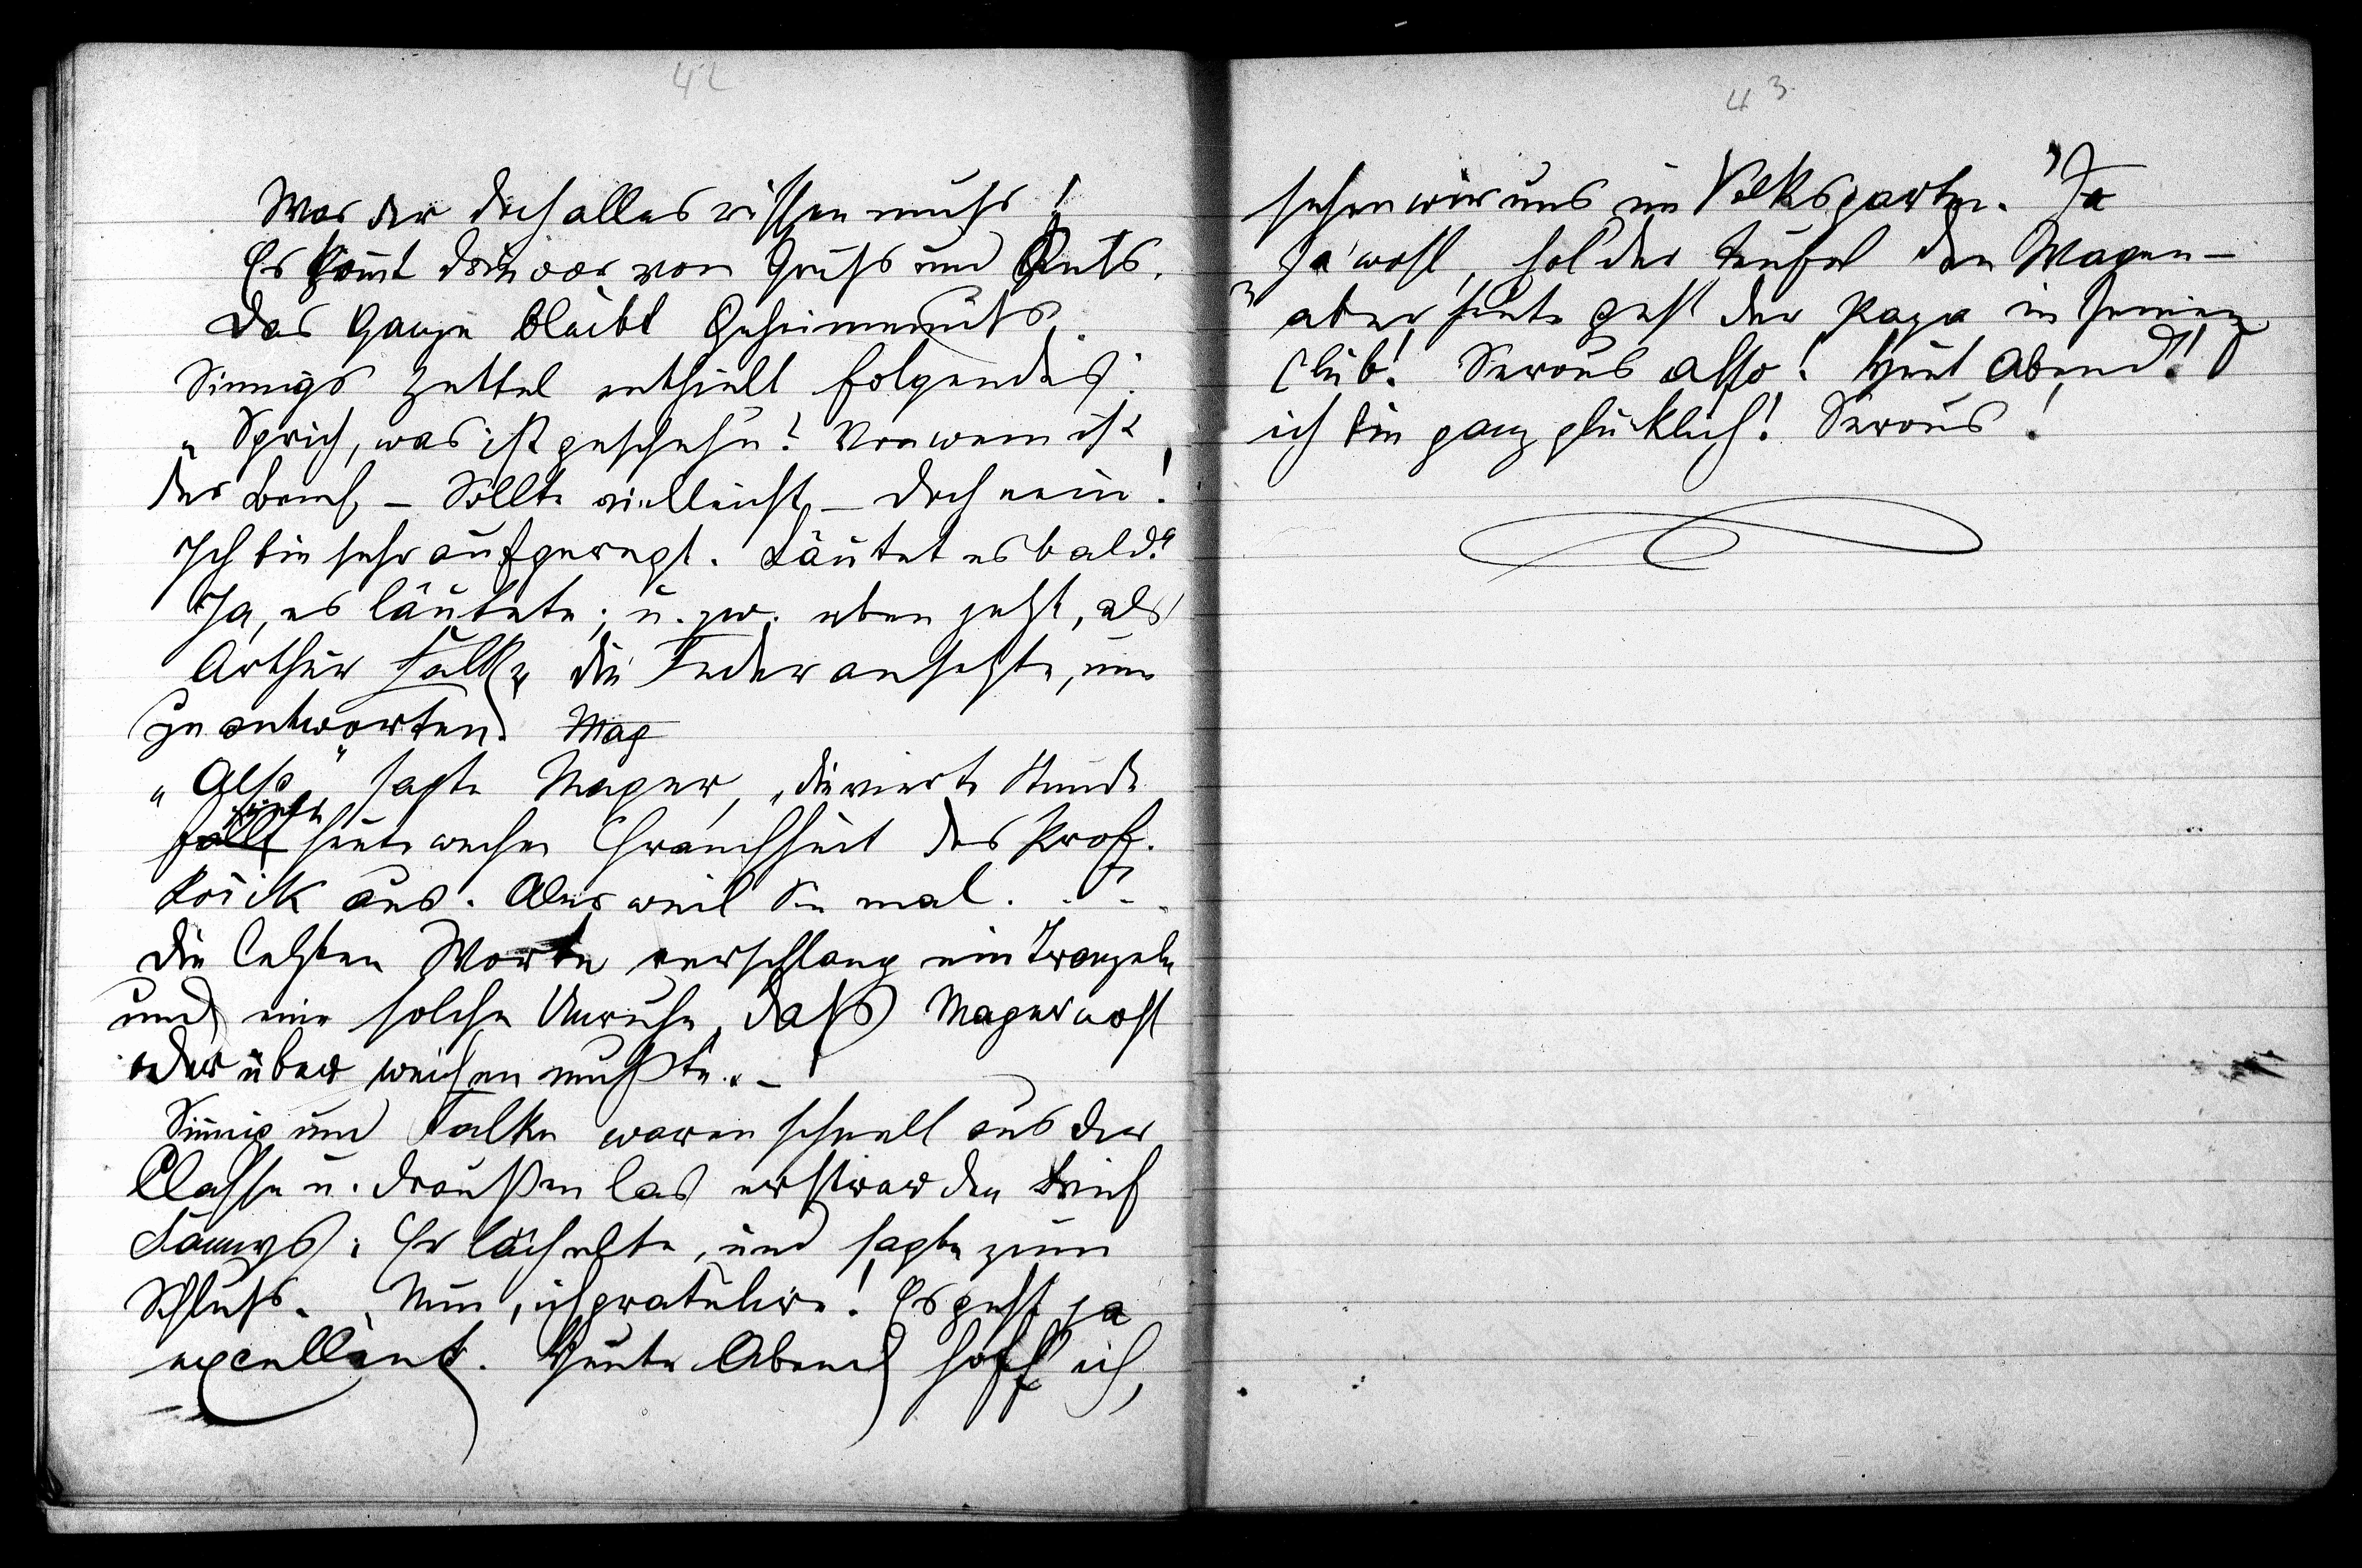 42
Was der doch alles wissen muss!
Es kommt drin vor, von Gruß und Kuß.
Das Ganze bleibt Geheimnuß.
Sinnigs Zettel enthielt folgendes:
„Sprich, was ist geschehn? Von wem ist
der Brief, – Sollte vielleicht – doch nein!
Ich bin sehr aufgeregt. Läutet es bald?“
Ja, es läutete; u. zw. eben jetzt, als
Arthur Falke die Feder ansetzte, um
zu antworten. Mag
„Also,“ sagte Mager, „die vierte Stunde
fällt heute wegen Chrankheit des Prof.
aus. Aber weil Sie mal . . . .
die letzten Worte verschlang ein Tranzeln
und eine solche Unruhe, daß Mager wohl
oder übel weichen mußte. –
Sinnig und Falke waren schnell aus der
Classe u. draußen las ersterer den Brief
Fannys. Er lächelte, und sagte zum
Schluß. „Nun, ich gratulire! Es geht ja
excellent. Heute Abend hoff ich,
43
sehen wir uns im Volksgarten.“ „Ja
ja wohl, hol der Teufel den Magen –
aber heute geht der Papa in seinen
Club! Servus also! Heut Abend!
ich bin ganz glücklich! Servus!